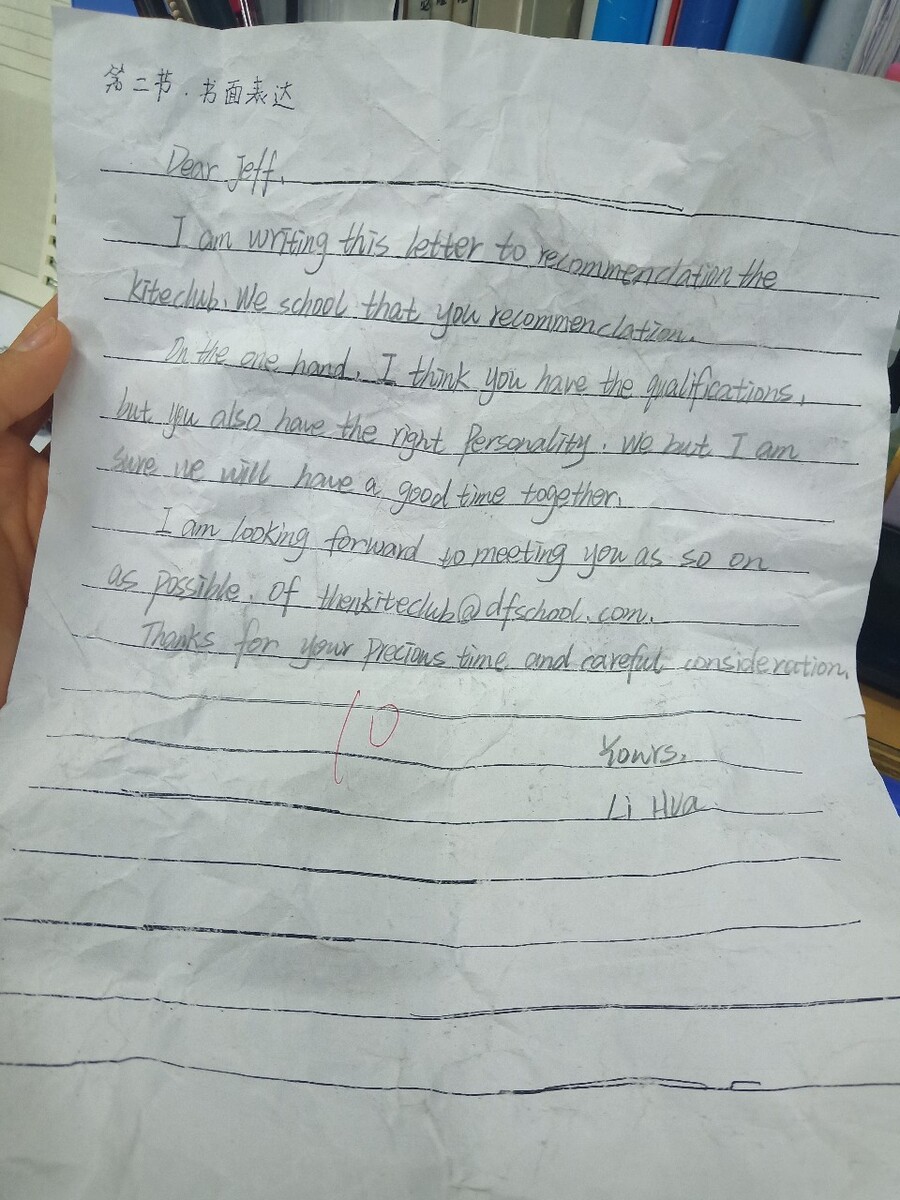 第二节.书面表达
Dear Jeff,
I am writing this letter to recommenclation the
kiteclub. We school that you recommenclation.
On the one hand, I think you have the qualifications,
but you also have the right Personality. We but I am
sure we will have a good time together.
I am looking forward to meeting you as so on
as possible. Of thenkiteclub@dfschool.com.
Thanks for your precious time and careful consideration.
10
Yours,
Li Hua